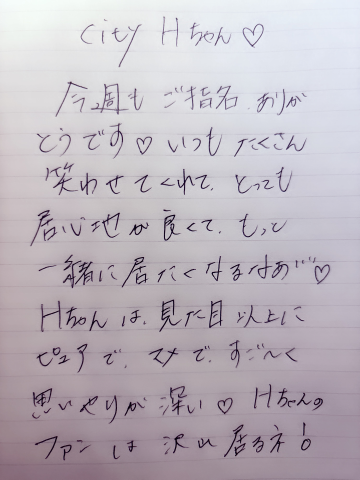 City Hちゃん♡
今週も ご指名 ありが
とうです♡ いつも たくさん
笑わせてくれて、とっても
居心地が良くて、もっと
一緒に居たくなるなあ〃♡
Hちゃんは、見た目以上に
ピュアで、マメで、すご〜く
思いやりが深い♡ Hちゃんの
ファンは 沢山居るネ!